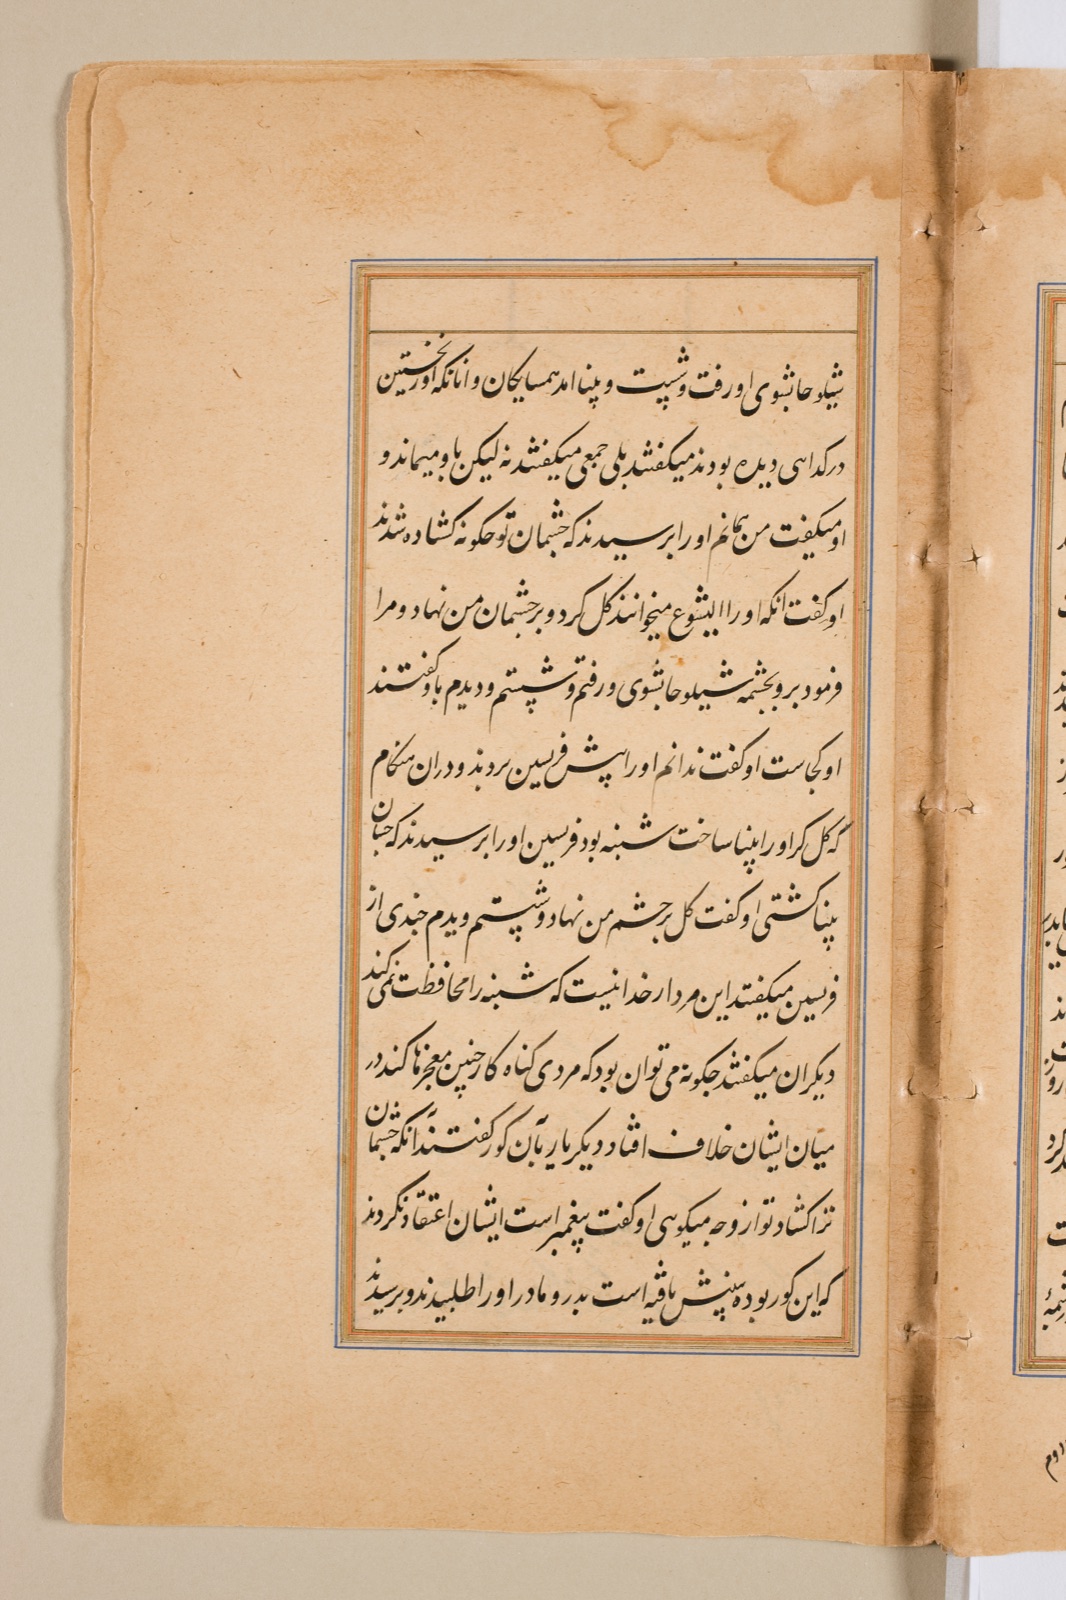 شیلوحا بشوی او رفت و شست و بینا امد همسایکان و انانکه اورا نخستین
در کدایی دیده بودند میکفتند بلی جمعی میکفتند نه لیکن باو میماند و
او میکفت من همانم اورا برسیدند که جشمان تو جکونه کشاده شدند
او کفت انکه اورا ایشوع میخوانند کل کرد و بر جشمان من نهاد و مرا
فرمود برو بجشمه شیلوحا بشوی و رفتم و شستم و دیدم باو کفتند
او کجاست او کفت ندانم اورا پیش فریسین بردند و دران هنکام
که کل کر اورا بینا ساخت شنبه بود فریسین اورا برسیدند که جسان
بینا کشتی او کفت کل بر جشم من نهاد و شستم و دیدم جندی از
فریسین میکفتند این مرد از خدا نیست که شنبه را محافظت نمی کند
دیکران میکفتند جکونه می توان بود که مردی کناه کار جنین معجزها کند در
میان ایشان خلاف افتاد دیکر بار بآن کور کفتند آنکه جشمان
ترا کشاد تو از وجه میکویی او کفت پیغمبر است ایشان اعتقاد نکردند
که این کور بوده بینش یافته است بدر و مادر اورا طلبیدند و برسیدند